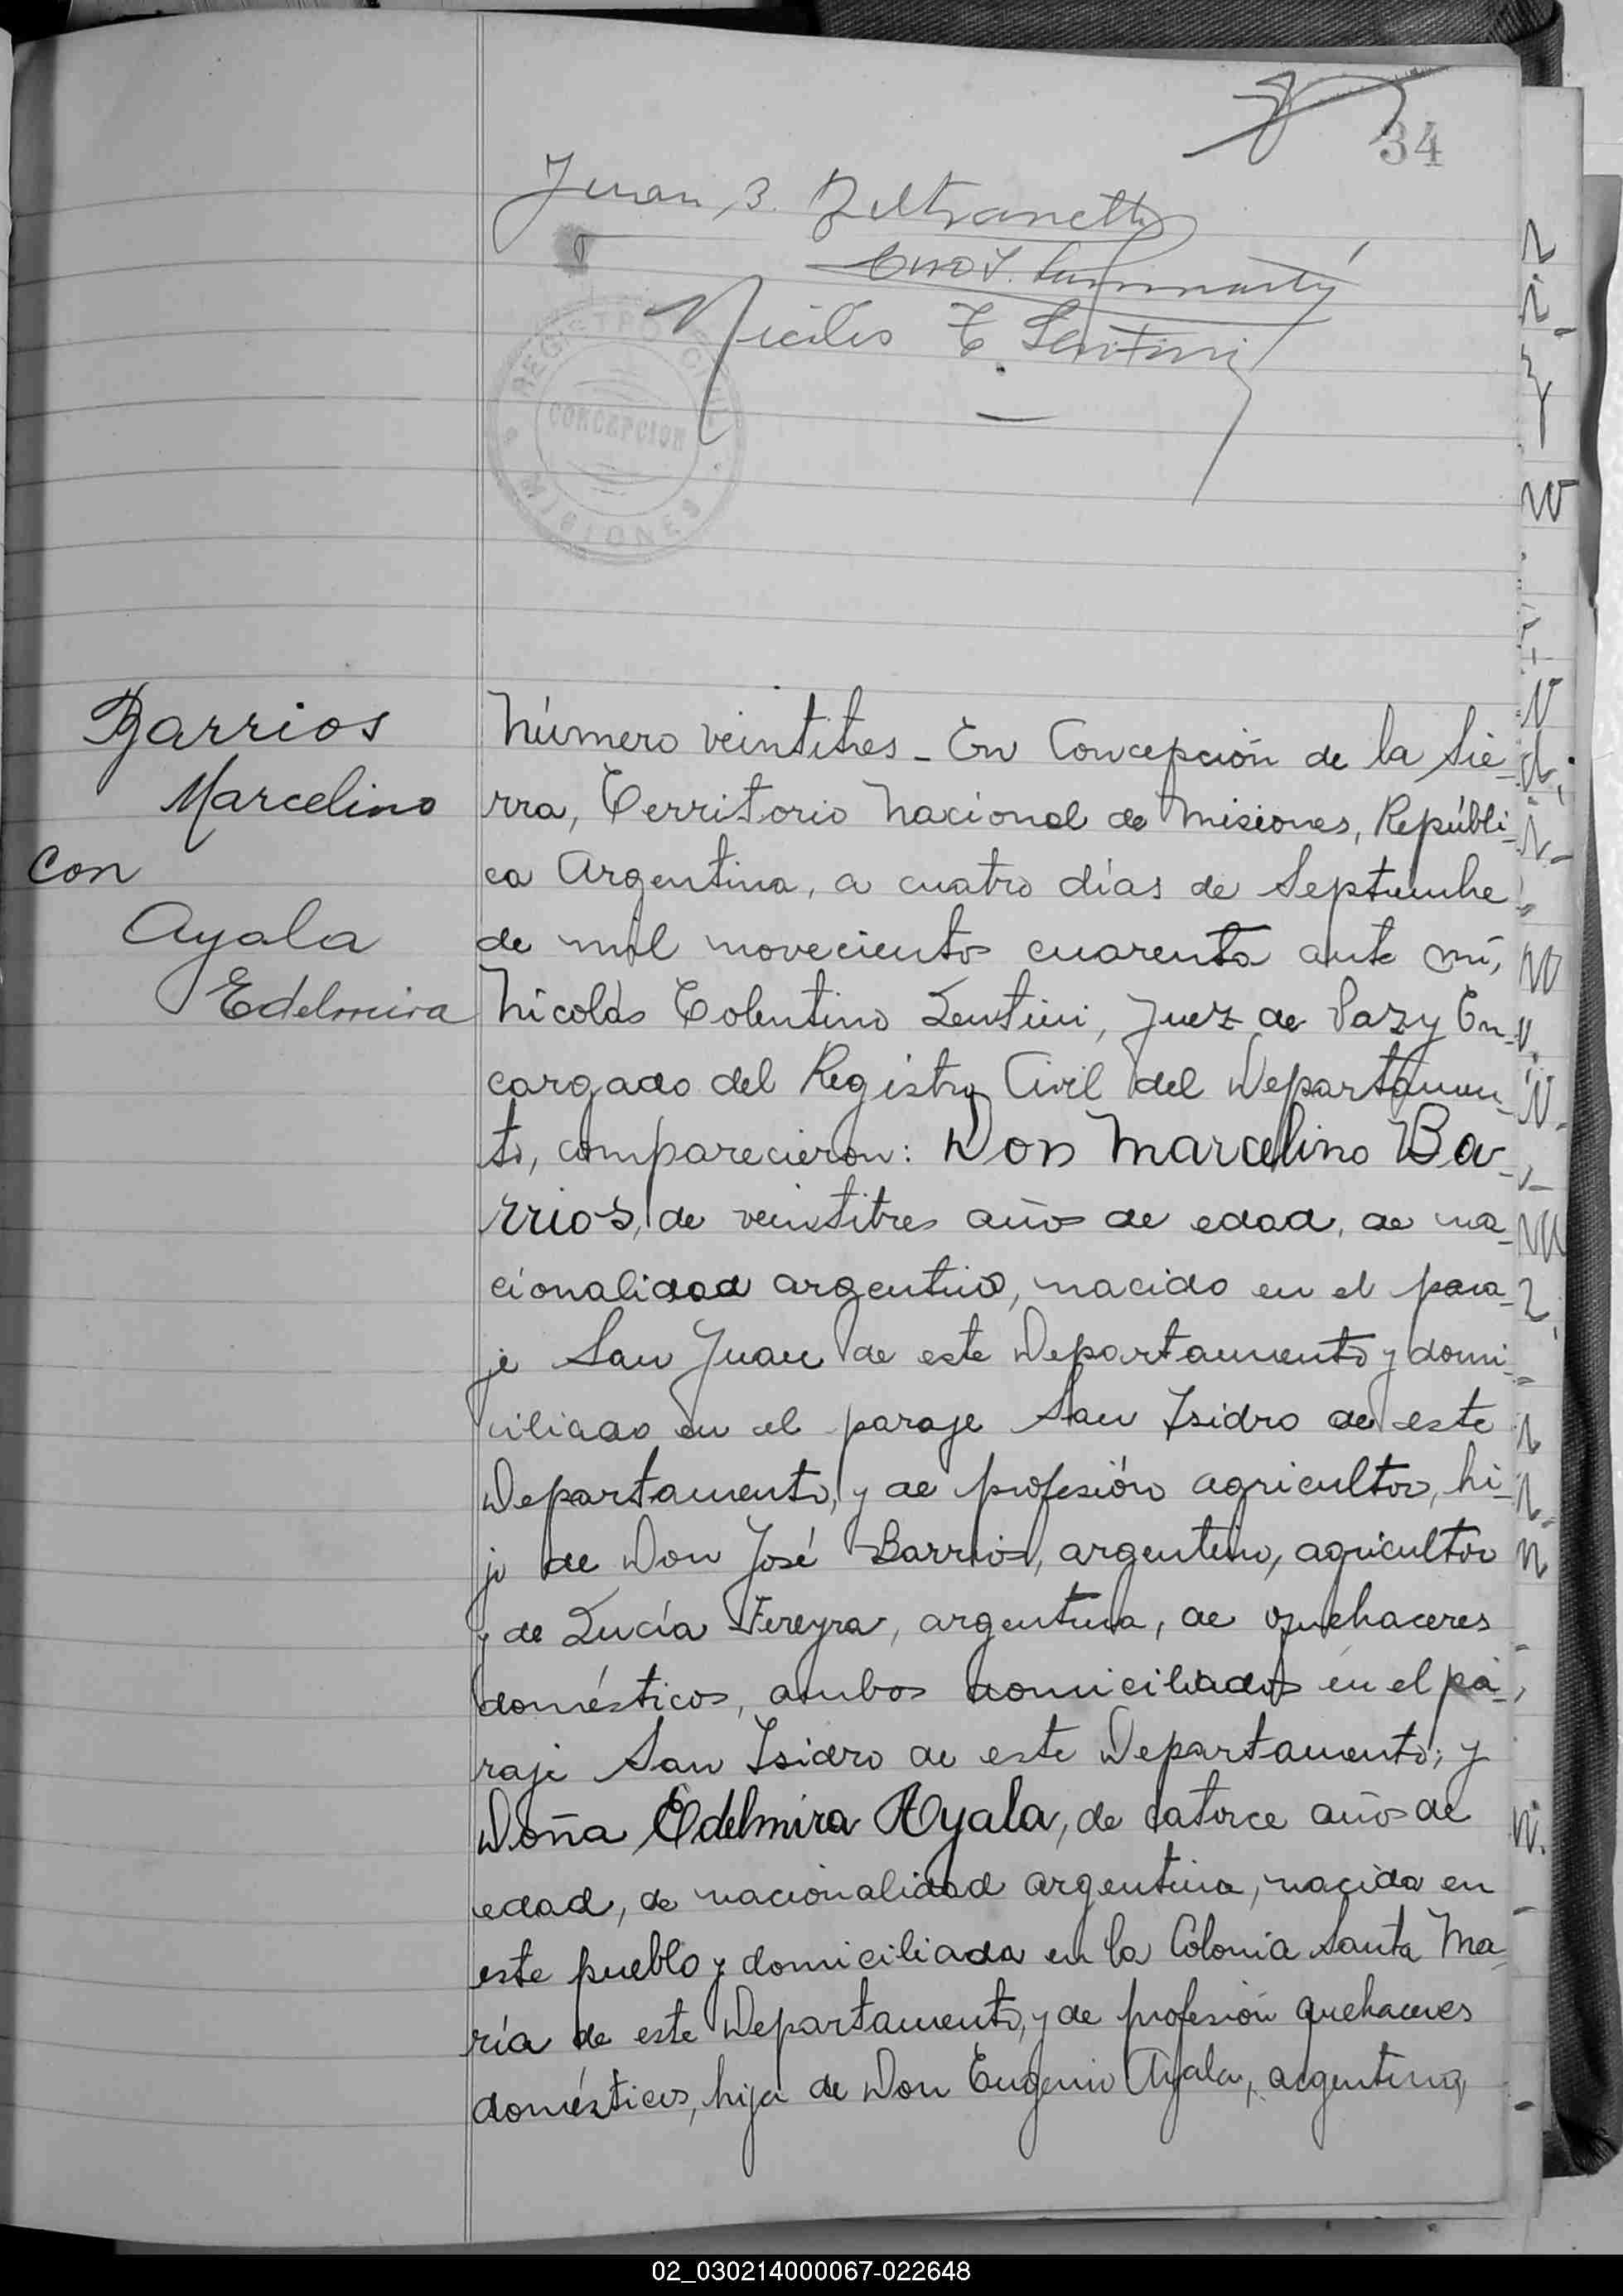 34
Juan B. Beltrametti
Nicolás T. Lentini
REGISTRO CIVIL
CONCEPCION
MISIONES
Barrios
Marcelino
con
Ayala
Edelmira
Número veintitres - En Concepción de la Sie-
rra, Territorio Nacional de Misiones, Repúbli-
ca Argentina, a cuatro días de Septiembre
de mil novecientos cuarenta ante mí,
Nicolás Tolentino Lentini, Juez de Paz y En-
cargado del Registro Civil del Departamen-
to, comparecieron: Don Marcelino Ba-
rrios, de veintitres años de edad, de na-
cionalidad argentino, nacido en el para-
je San Juan de este Departamento y domi-
ciliado en el paraje San Isidro de este
Departamento, y de profesión agricultor, hi-
jo de Don José Barrios, argentino, agricultor
y de Lucía Fereyra, argentina, de quehaceres
domésticos, ambos domiciliados en el pa-
raje San Isidro de este Departamento; y
Doña Edelmira Ayala, de catorce años de
edad, de nacionalidad argentina, nacida en
este pueblo y domiciliada en la Colonia Santa Ma-
ría de este Departamento, y de profesión quehaceres
domésticos, hija de Don Eugenio Ayala, argentino,
02_030214000067-022648